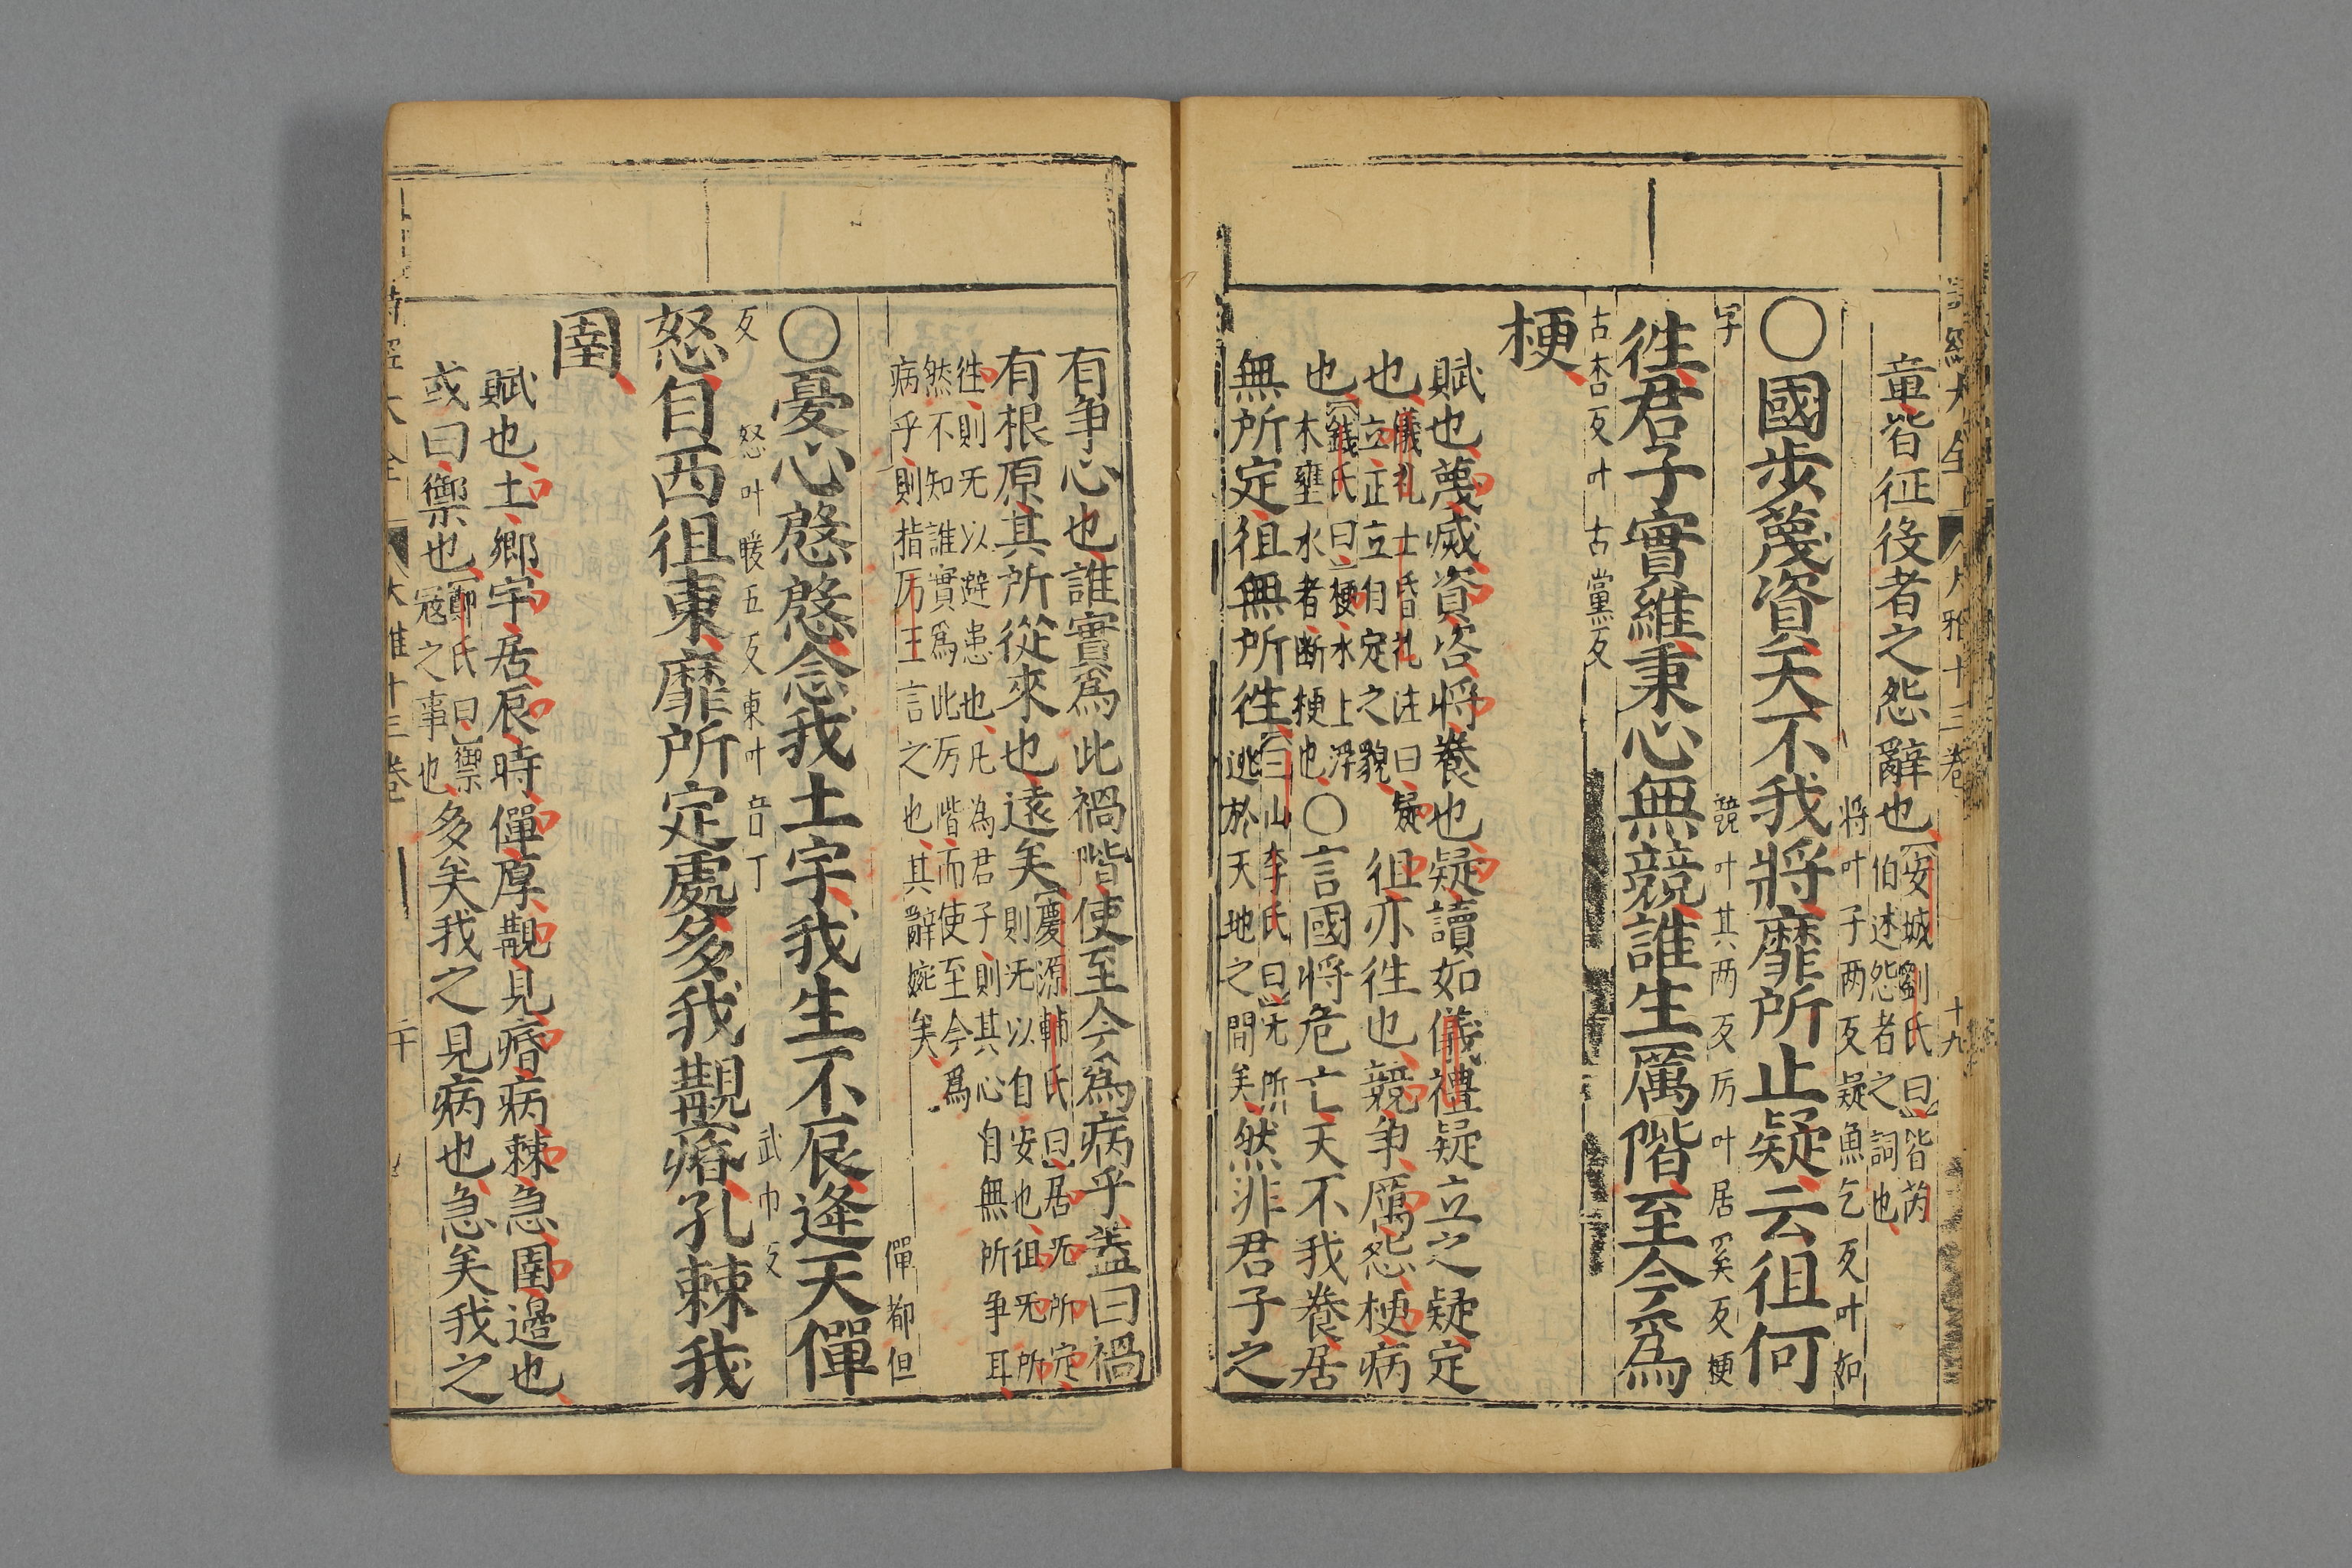 詩經大全 大雅十三卷 十九
童皆征役者之怨辭也
安城劉氏曰皆芮
伯述怨者之詞也
將叶子兩反疑魚乞反叶如
○國步蔑資天不我將靡所止疑云徂何
字
競叶其兩反厉叶居奚反梗
徃君子實維秉心無競誰生厲階至今爲
古杏反叶古黨反
梗
賦也蔑滅資咨將養也疑讀如儀禮疑立之疑定
也
儀礼士昏礼注曰疑
立正立自定之貌
徂亦徃也競争厲怨梗病
也
錢氏曰梗水上浮
木壅水者断梗也
○言國將危亡天不我養居
無所定徂無所徃
三山李氏曰无所
逃於天地之間矣
然非君子之
有争心也誰實爲此禍階使至今爲病乎蓋曰禍
有根原其所從來也遠矣
慶源輔氏曰居无所定
則无以自安也徂无所
徃則无以避患也凡為君子則其心自無所争耳
然不知誰實爲此厉階而使至今爲
病乎則指厉王言之也其辭婉矣
僤都但
○憂心慇慇念我土宇我生不辰逢天僤
反 怒叶暖五反東叶音丁 武巾反
怒自西徂東靡所定處多我覯痻孔棘我
圉
賦也土鄉宇居辰時僤厚覯見痻病棘急圉邊也
或曰禦也
鄭氏曰禦
寇之事也
多矣我之見病也急矣我之
詩經大全 大雅十三卷 二十